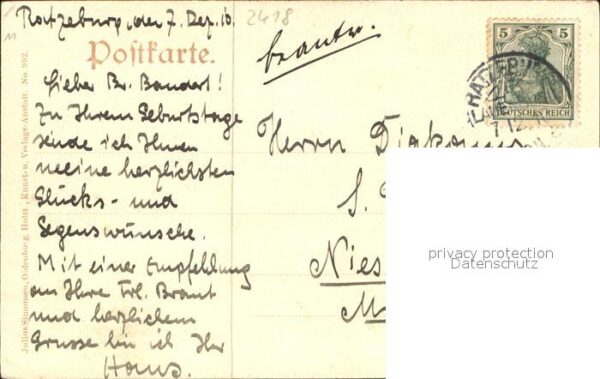 Ratzeburg, den 7. Dez. 10.
2418
11
Postkarte.
beantw.
5 5
DEUTSCHES REICH
RATZEBU
7 12
Lieber Br. Bandart!
Zu Ihrem Geburtstage
sende ich Ihnen
meine herzlichsten
Glücks- und
Segenswünsche.
Mit einer Empfehlung
an Ihre Frl. Braut
und herzlichem
Grusse bin ich Ihr
Hans.
Herrn Diakonus
S.
Nies
M
Julius Simonsen, Oldenburg, Holst., Kunst- u. Verlags-Anstalt. No 992.
privacy protection
Datenschutz